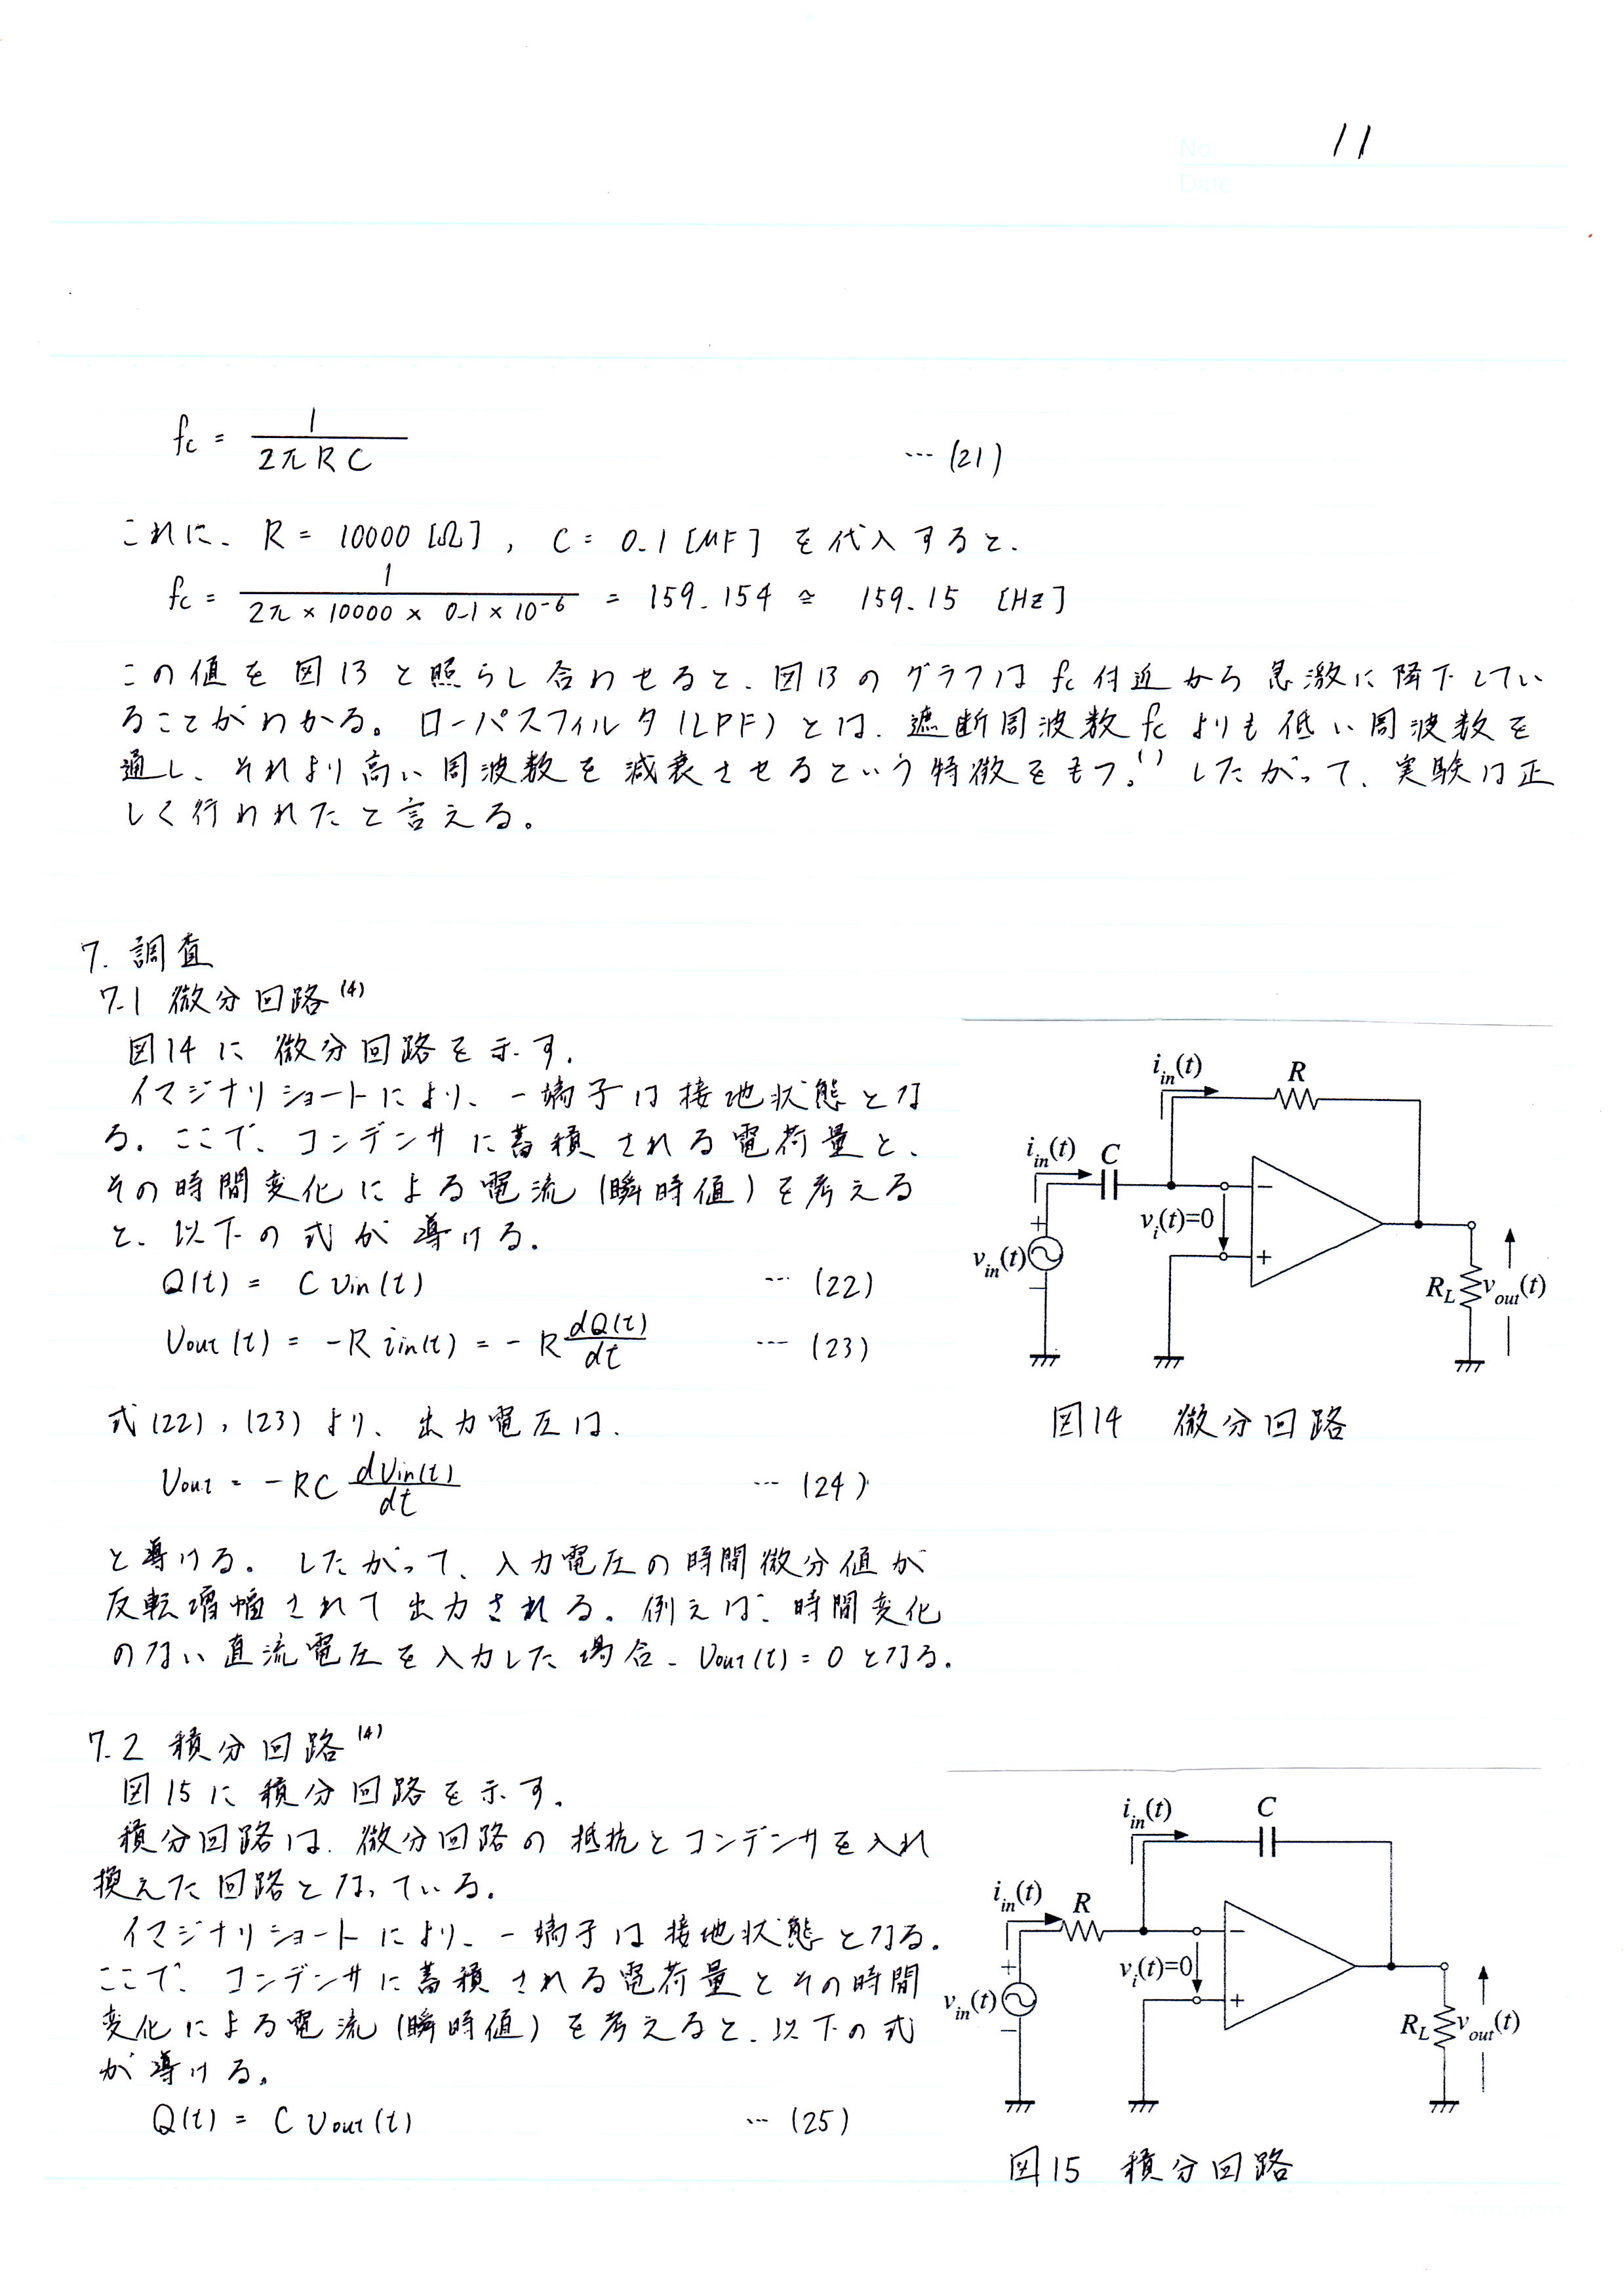 No 11
Date
fc = 1 / 2πRC … (21)
これに、R = 10000 [Ω] , C = 0.1 [μF] を代入すると、
fc = 1 / 2π × 10000 × 0.1 × 10⁻⁶ = 159.154 ≃ 159.15 [Hz]
この値を図13と照らし合わせると、図13のグラフは fc 付近から急激に降下してい
ることがわかる。ローパスフィルタ(LPF)とは、遮断周波数 fc よりも低い周波数を
通し、それより高い周波数を減衰させるという特徴をもつ。⁽¹⁾ したがって、実験は正
しく行われたと言える。
7. 調査
7.1 微分回路⁽⁴⁾
図14に微分回路を示す。
イマジナリショートにより、－端子は接地状態とな
る。ここで、コンデンサに蓄積される電荷量と、
その時間変化による電流(瞬時値)を考える
と、以下の式が導ける。
Q(t) = C vin(t) … (22)
vout(t) = -R iin(t) = -R dQ(t)/dt … (23)
式(22), (23)より、出力電圧は、
vout = -RC dvin(t)/dt … (24)
と導ける。したがって、入力電圧の時間微分値が
反転増幅されて出力される。例えば、時間変化
のない直流電圧を入力した場合、vout(t) = 0 となる。
iin(t)
R
iin(t)
C
vi(t)=0
vin(t)
+
−
−
+
RL
vout(t)
図14 微分回路
7.2 積分回路⁽⁴⁾
図15に積分回路を示す。
積分回路は、微分回路の抵抗とコンデンサを入れ
換えた回路となっている。
イマジナリショートにより、－端子は接地状態となる。
ここで、コンデンサに蓄積される電荷量とその時間
変化による電流(瞬時値)を考えると、以下の式
が導ける。
Q(t) = C vout(t) … (25)
iin(t)
C
iin(t)
R
vi(t)=0
vin(t)
+
−
−
+
RL
vout(t)
図15 積分回路